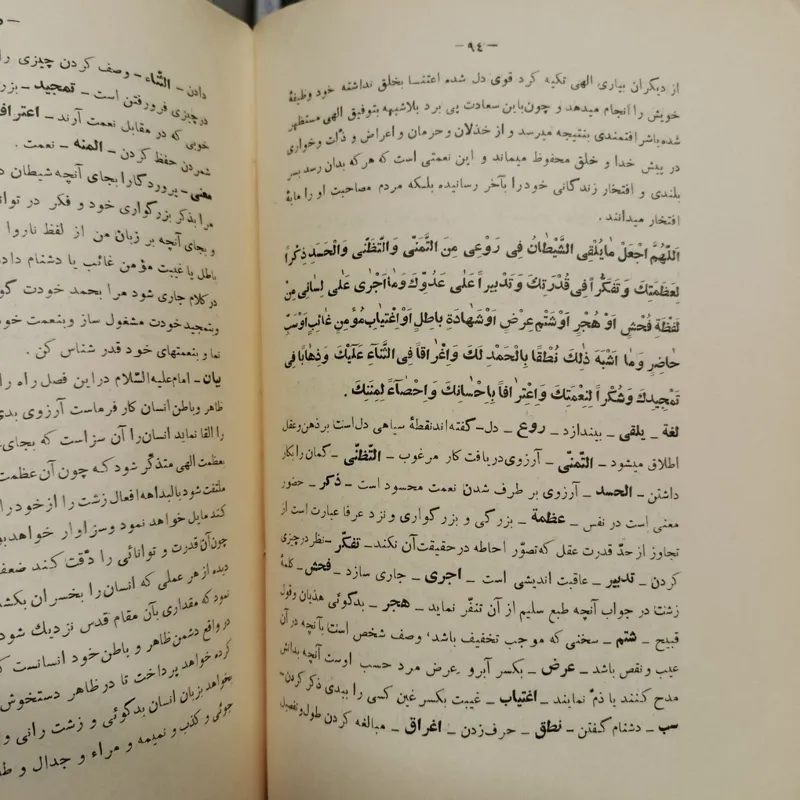 – ٩٤ –
از دیگران بیاری الهی تکیه کرد قوی دل شده اعتنا بخلق نداشته خود وظیفهٔ
خویش را انجام میدهد و چون باین سعادت پی برد بلاشبهه بتوفیق الهی مستظهر
شده باشرافتمندی بنتیجه میرسد و از خذلان و حرمان و اعراض و ذلّت و خواری
در پیش خدا و خلق محفوظ میماند و این نعمتی است که هر که بدان رسد بسر
بلندی و افتخار زندگانی خود را بآخر رسانیده بلکه مردم مصاحبت او را مایهٔ
افتخار میدانند .
اَللّهُمَّ اجْعَلْ مٰا يُلْقِى الشَّيْطٰانُ فِى رَوْعِى مِنَ التَّمَنّٰى وَالتَّظَنّٰى وَالْحَسَدِ ذِكْراً
لِعَظَمَتِكَ وَ تَفَكُّراً فِى قُدْرَتِكَ وَ تَدْبِيراً عَلٰى عَدُوِّكَ وَ مٰا اَجْرٰى عَلٰى لِسٰانِى مِنْ
لَفْظَةِ فُحْشٍ اَوْ هُجْرٍ اَوْ شَتْمِ عِرْضٍ اَوْ شَهٰادَةِ بٰاطِلٍ اَوِ اغْتِيٰابِ مُؤْمِنٍ غٰائِبٍ اَوْ سَبِّ
حٰاضِرٍ وَ مٰا اَشْبَهَ ذٰلِكَ نُطْقاً بِالْحَمْدِ لَكَ وَ اِغْرٰاقاً فِى الثَّنٰاءِ عَلَيْكَ وَ ذِهٰاباً فِى
تَمْجِيدِكَ وَ شُكْراً لِنِعْمَتِكَ وَ اِعْتِرٰافاً بِاِحْسٰانِكَ وَ اِحْصٰاءً لِمِنَنِكَ .
لغة ـ یلقی ـ بیندازد ـ روع ـ دل ـ گفته اند نقطهٔ سیاهی دل است بر ذهن و عقل
اطلاق میشود ـ التّمنّی ـ آرزوی دریافت کار مرغوب ـ التّظنّی ـ گمان را بکار
داشتن ـ الحسد ـ آرزوی بر طرف شدن نعمت محسود است ـ ذکر ـ حضور
معنی است در نفس ـ عظمة ـ بزرگی و بزرگواری و نزد عرفا عبارت است از
تجاوز از حدّ قدرت عقل که تصوّر احاطه در حقیقت آن نکند ـ تفکّر ـ نظر در چیزی
کردن ـ تدبیر ـ عاقبت اندیشی است ـ اجری ـ جاری سازد ـ فحش ـ کلمهٔ
زشت در جواب آنچه طبع سلیم از آن تنفّر نماید ـ هجر ـ بدگوئی هذیان و قول
قبیح ـ شتم ـ سخنی که موجب تخفیف باشد، وصف شخص است بآنچه در آن
عیب و نقص باشد ـ عرض ـ بکسر آبرو و عرض مرد حسب اوست آنچه بدانش
مدح کنند یا ذمّ نمایند ـ اغتیاب ـ غیبت بکسر غین کسی را ببدی ذکر کردن ـ
سب ـ دشنام گفتن ـ نطق ـ حرف زدن ـ اغراق ـ مبالغه کردن طول و تفصیل
دادن ـ الثّناء ـ وصف کردن چیزی را
در چیزی فرو رفتن است ـ تمجید ـ بزر
خوبی که در مقابل نعمت آرند ـ اعتراف
شمردن حفظ کردن ـ المنه ـ نعمت .
معنی ـ پروردگارا بجای آنچه شیطان د
مرا بذکر بزرگواری خود و فکر در توا
و بجای آنچه بر زبان من از لفظ ناروا
باطل یا غیبت مؤمن غائب یا دشنام داد
در کلام جاری شود مرا بحمد خودت گو
وبتمجید خودت مشغول ساز وبنعمت خو
نما و بنعمتهای خود قدر شناس کن .
بیان ـ امام علیه السّلام در این فصل راه را
ظاهر وباطن انسان کار فرماست آرزوی بدی
را القا نماید انسان را آن سزاست که بجای
بعظمت الهی متذکّر شود که چون آن عظمت
ملتفت شود بالبداهه افعال زشت را از خود را
کند مایل خواهد نمود وسزاوار خواهد بو
چون آن قدرت و توانائی را دقّت کند ضعف
دیده از هر عملی که انسان را بخسران بکشد
نمود که مقداری بآن مقام قدس نزدیك شود
در واقع دشمن ظاهر و باطن خود انسانست ک
کرده خواهد پرداخت تا در ظاهر دستخوش
بخواهد بزبان انسان بدگوئی و زشت رانی و
جوئی و کذب و نمیمه و مراء و جدال و ط